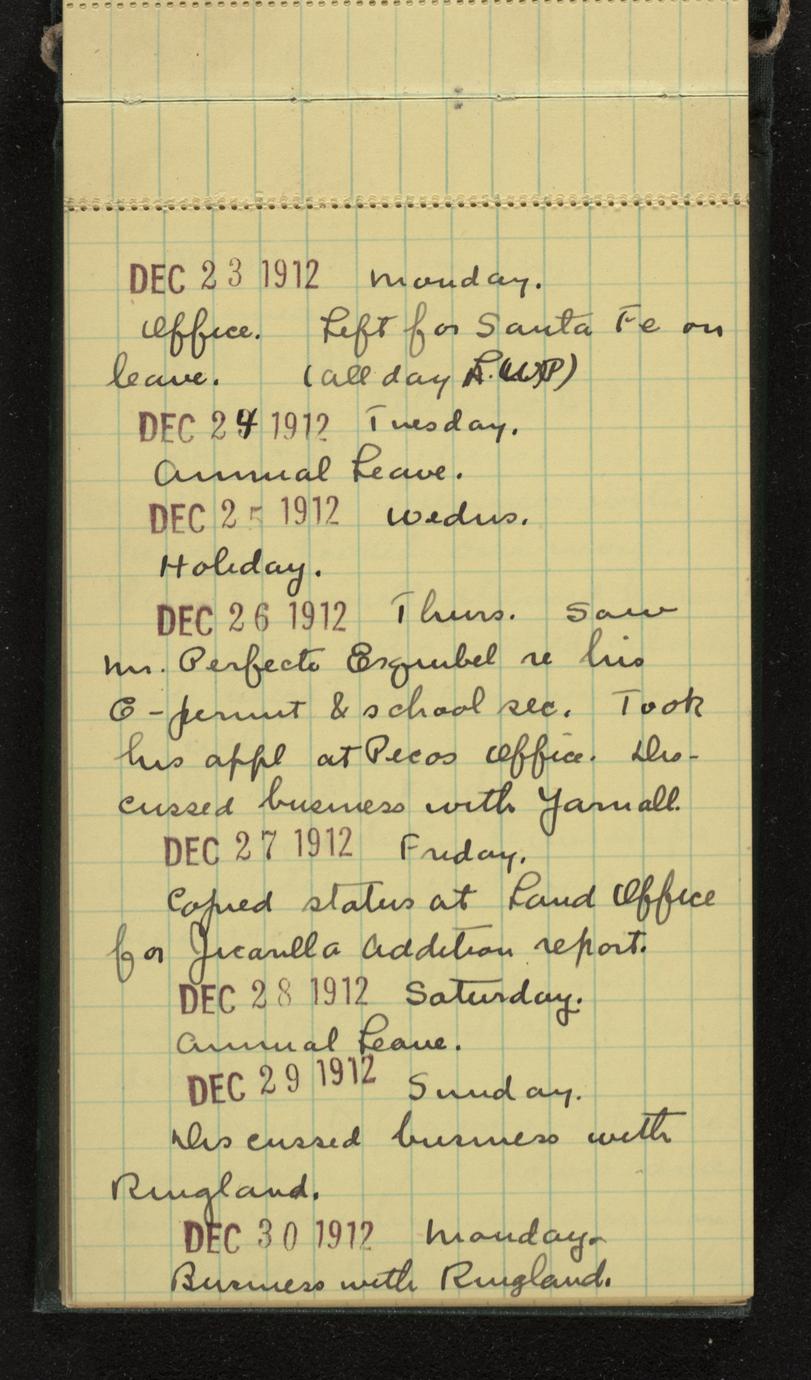 DEC 23 1912 Monday.
Office. Left for Santa Fe on
leave. (all day L.W.P)
DEC 24 1912 Tuesday.
Annual Leave.
DEC 25 1912 Wedns.
Holiday.
DEC 26 1912 Thurs. Saw
Mr. Perfecto Esquibel re his
G-permit & school sec. Took
his appl at Pecos Office. Dis-
cussed business with Yarnall.
DEC 27 1912 Friday.
Copied status at Land Office
for Jicarilla Addition report.
DEC 28 1912 Saturday.
Annual Leave.
DEC 29 1912 Sunday.
Discussed business with
Ringland.
DEC 30 1912 Monday.
Business with Ringland.